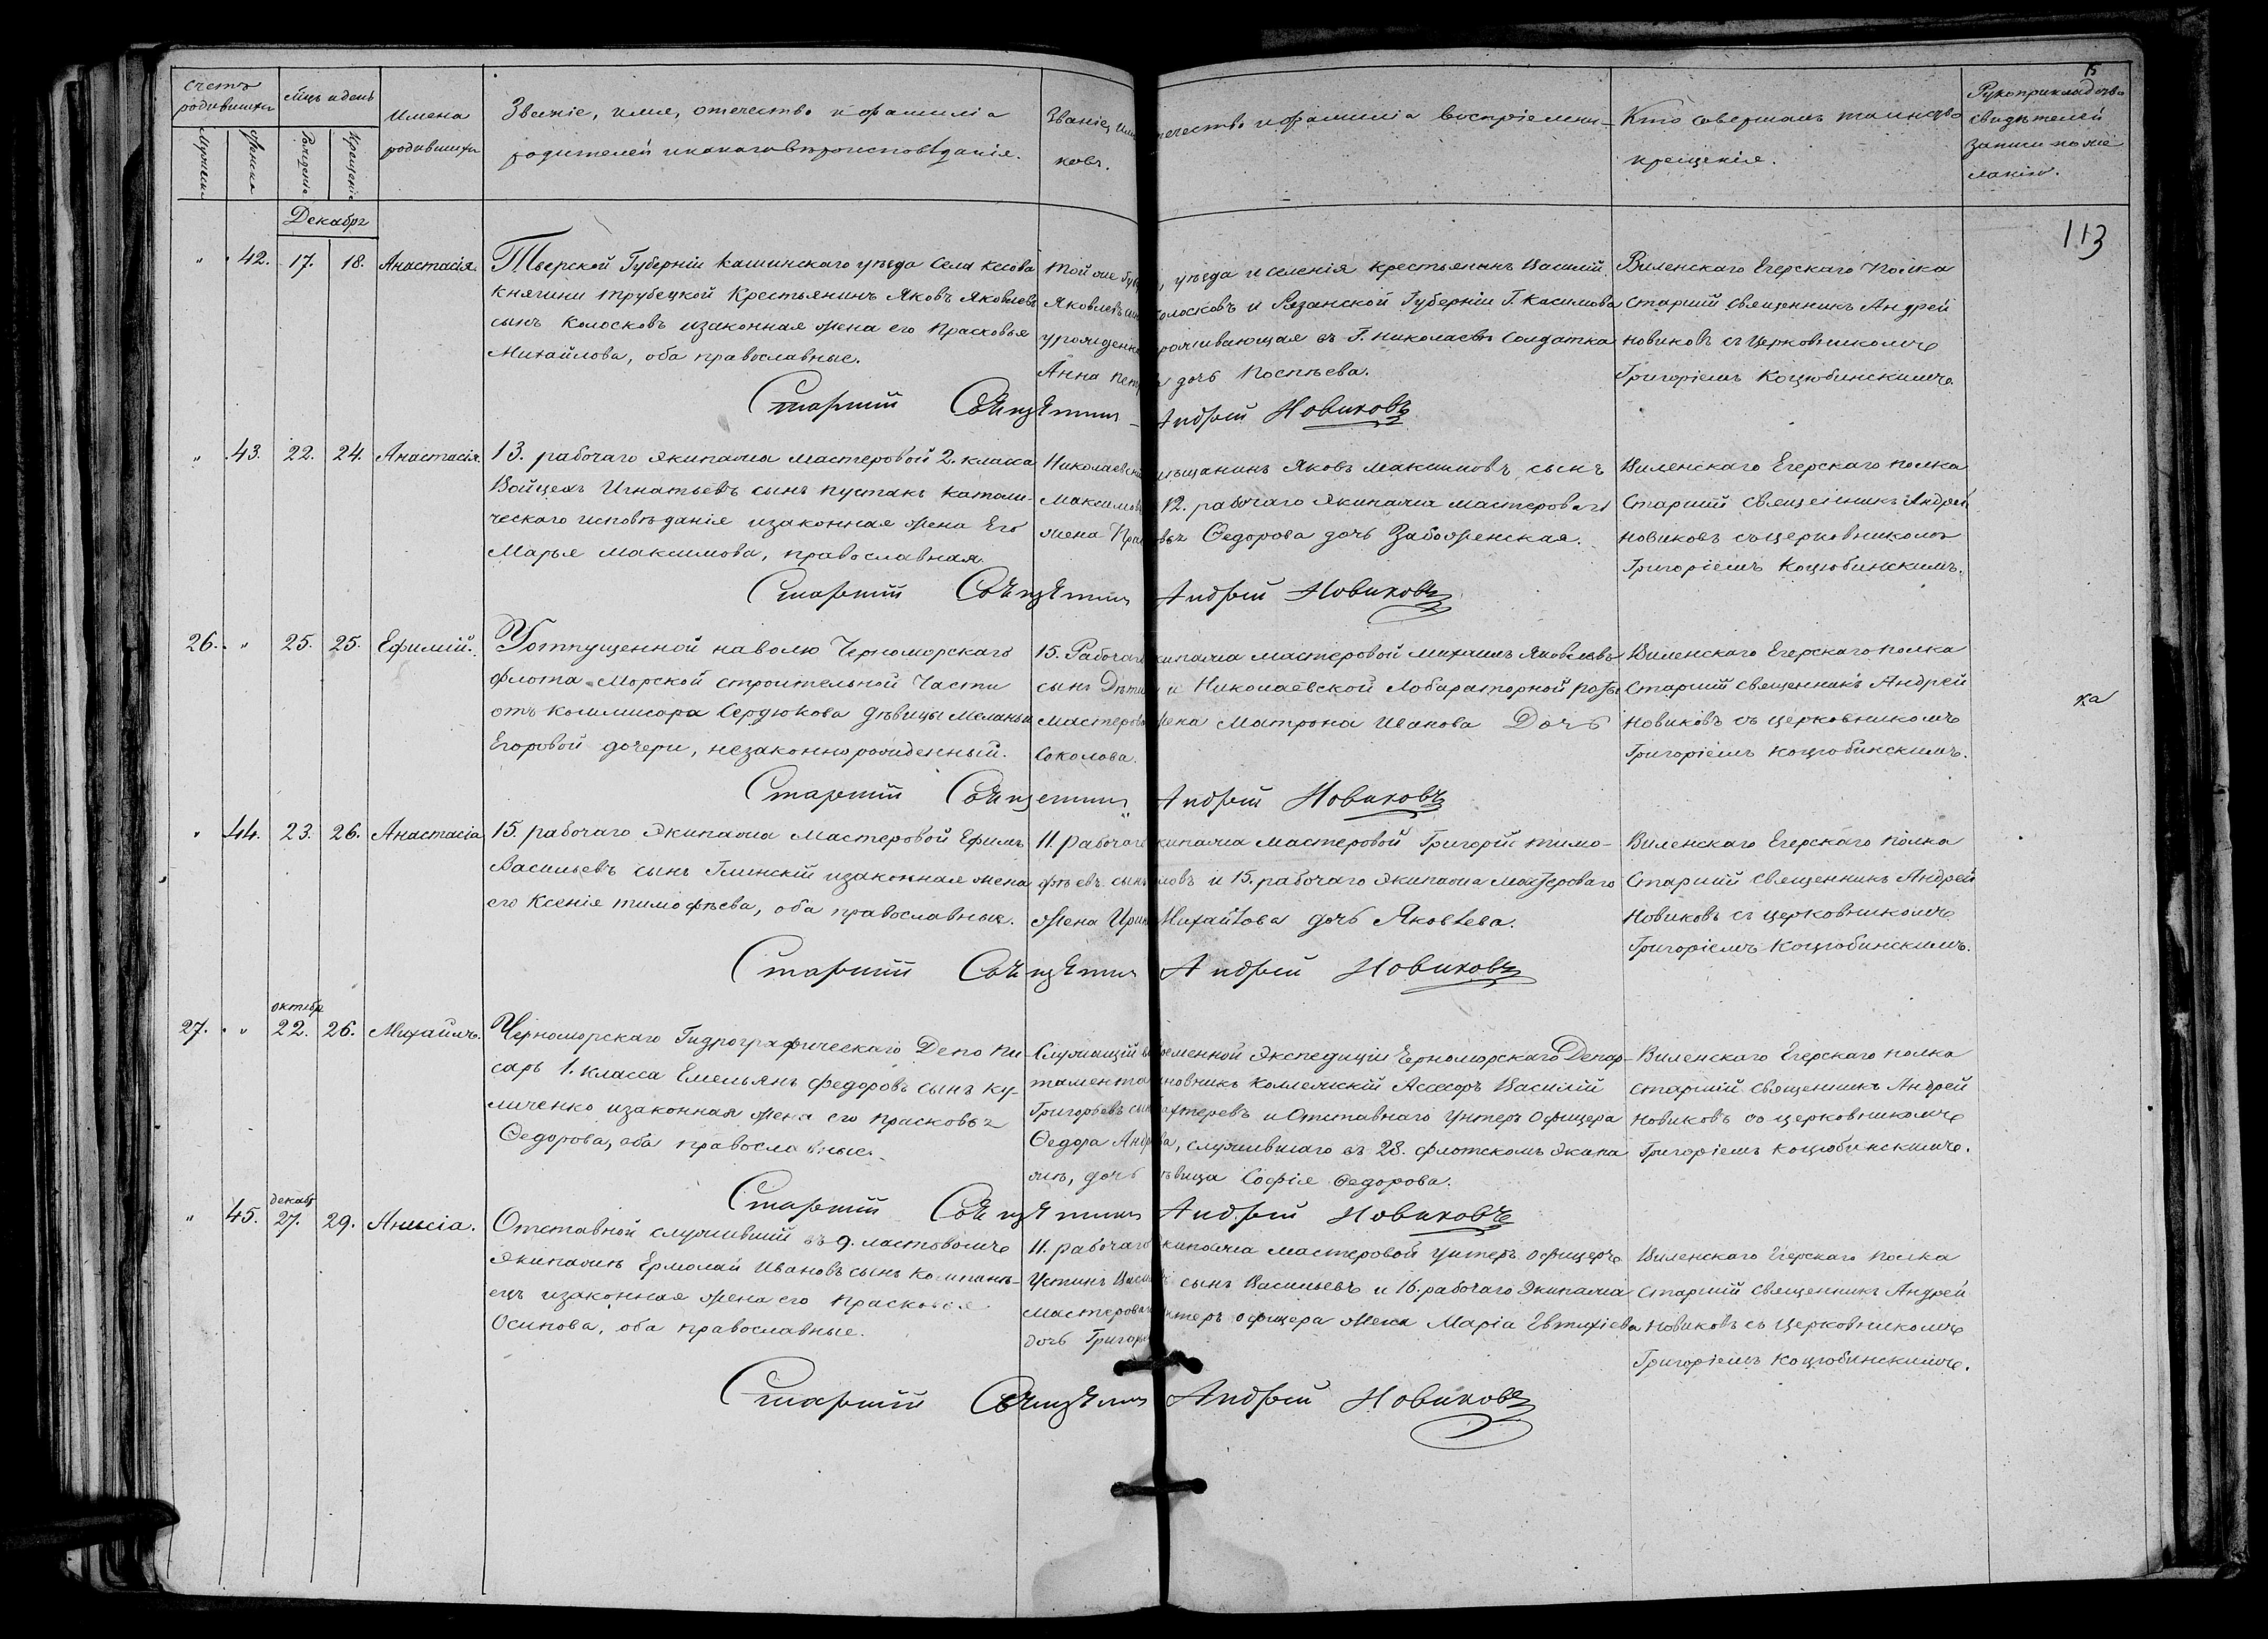 15
Счетъ родившихся
Мужеска
Женска
Мцъ и день
Рожденія
Крещенія
Имена
родившихся
Званіе, имя, отечество и фамилія
родителей и какаго вѣроисповѣданія.
Званіе, имя, отечество и фамилія воспріемни-
ковъ.
Кто совершалъ таинство
крещенія.
Рукоприкладство
свидѣтелей
записи по же
ланію.
113
Декабря
" 42. 17. 18. Анастасія.
Тверской Губерніи Кашинскаго уѣзда Села Кесова
Княгини Трубецкой Крестьянинъ Яковъ Яковлевъ
сынъ Колосковъ и законная жена его Прасковья
Михайлова, оба православные.
Той же губ, уѣзда и селенія крестьянинъ Василій
Яковлевъ сынъ Колосковъ и Рязанской Губерніи Г. Касимова
урожденка проживающая въ Г. Николаевѣ Солдатка
Анна Петрова дочь Поспѣева.
Виленскаго Егерскаго Полка
Старшій Священникъ Андрей
Новиковъ съ Церковникомъ
Григоріемъ Коцюбинскимъ.
Старшій Священникъ Андрей Новиковъ
" 43. 22. 24. Анастасія.
13. рабочаго экипажа мастеровой 2. класса
Войцехъ Игнатьевъ сынъ Пустакъ католи-
ческаго исповѣданія и законная жена Его
Марья Максимова, православная.
Николаевскій мѣщанинъ Яковъ Максимовъ сынъ
Максимовъ 12. рабочаго Экипажа мастероваго
жена Прасковья Ѳедорова дочь Забоженская.
Виленскаго Егерскаго полка
Старшій Священникъ Андрей
Новиковъ съ церковникомъ
Григоріемъ Коцюбинскимъ.
Старшій Священникъ Андрей Новиковъ
26. " 25. 25. Ефимій.
У отпущенной на волю Черноморскаго
флота Морской строительной Части
отъ Коммисора Сердюкова дѣвицы Меланьи
Егоровой дочери, незаконнорожденный.
15. Рабочаго экипажа мастеровой Михаилъ Яковлевъ
сынъ и Николаевской Лобараторной роты
Мастероваго жена Матрона Иванова Дочь
Соколова.
Виленскаго Егерскаго полка
Старшій Священникъ Андрей
Новиковъ съ церковникомъ
Григоріемъ Коцюбинскимъ.
ка
Старшій Священникъ Андрей Новиковъ
" 44. 23. 26. Анастасія
15. рабочаго Экипажа Мастеровой Ефимъ
Васильевъ сынъ Глинскій и законная жена
его Ксенія Тимофѣева, оба православные.
11. рабочаго экипажа мастеровой Григорій Тимо-
фѣевъ сынъ и 15. рабочаго экипажа мастероваго
жена Ирина Михайлова дочь Яковлева.
Виленскаго Егерскаго полка
Старшій Священникъ Андрей
Новиковъ съ церковникомъ
Григоріемъ Коцюбинскимъ.
Старшій Священникъ Андрей Новиковъ
октябр
27. " 22. 26. Михаилъ.
Черноморскаго Гидрографическаго Депо пи-
сарь 1. класса Емельянъ Федоровъ сынъ Ку-
личенко и законная жена его Прасковья
Ѳедорова, оба православные.
Служащій во временной Экспедиціи Черноморскаго Депар-
тамента чиновникъ Коллежскій Асесоръ Василій
Григорьевъ сынъ и Отставнаго Унтеръ Офицера
Ѳедора, служившаго въ 28. флотскомъ экипа
жѣ, дочь дѣвица Софія Ѳедорова.
Виленскаго Егерскаго полка
старшій священникъ Андрей
Новиковъ со церковникомъ
Григоріемъ Коцюбинскимъ.
Старшій Священникъ Андрей Новиковъ
декабр
" 45. 27. 29. Анисія.
Отставной служившій въ 9. ластовомъ
Экипажѣ Ермолай Ивановъ сынъ Компанѣ-
ецъ и законная жена его Прасковія
Осипова, оба православные.
11. рабочаго экипажа мастеровой унтеръ офицеръ
Устинъ сынъ Васильевъ и 16. рабочаго Экипажа
мастероваго унтеръ офицера жена Марія Евтихіева
дочь
Виленскаго Егерскаго полка
Старшій Священникъ Андрей
Новиковъ съ Церковникомъ
Григоріемъ Коцюбинскимъ.
Старшій Священникъ Андрей Новиковъ